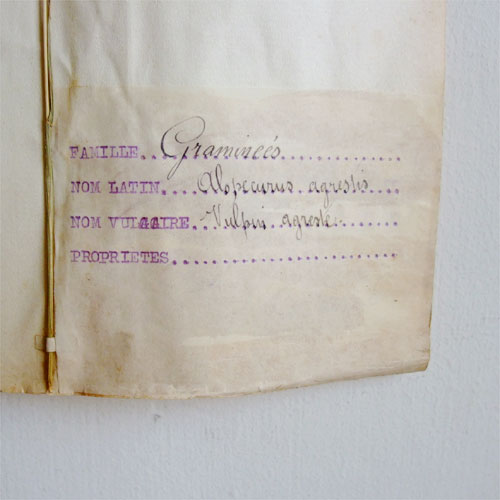 FAMILLE...Graminées..............
NOM LATIN....Alopecurus agrestis....
NOM VULGAIRE..Vulpin agreste........
PROPRIETES.........................